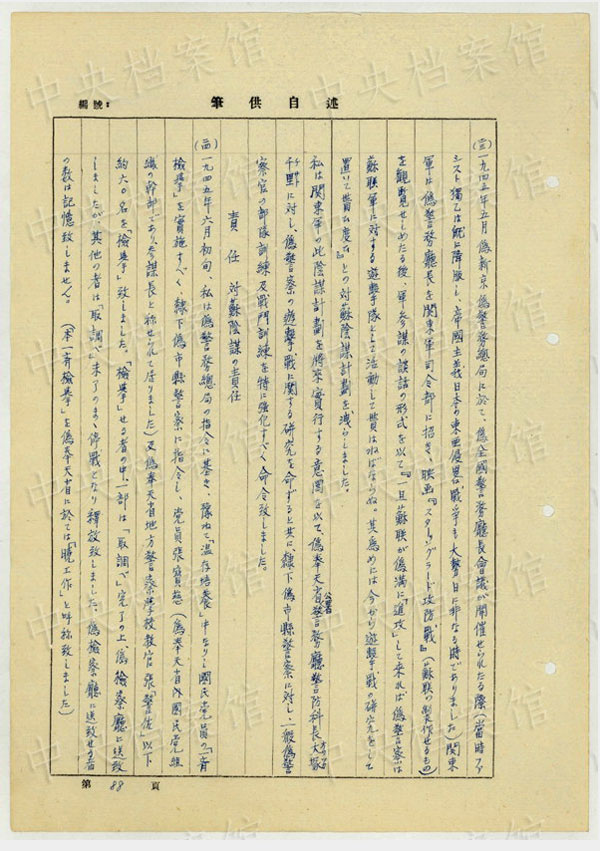 編號：
筆供自述
(三)一九四五年五月偽新京偽警務總局に於て、偽全國警務廳長會議が開催せられたる際(當時ファ
シスト獨乙は既に降服し、帝國主義日本の東亜侵畧戰爭も大勢日に非なる時でありました)関東
軍は偽警務廳長を関東軍司令部に招き、映画『スターリングラード攻防戰』(蘇联の製作せるもの)
を観覧せしめたる後、軍参謀の談話の形式を以て『一旦蘇联が偽満に「進攻」して来れば偽警察は
蘇联軍に対する遊撃隊として活動して貰はねばならぬ。其為めには今から遊撃戰の研究をして
置いて貰ひ度い』との対蘇陰謀計劃を洩らしました。
私は関東軍の此陰謀計劃を將来實行する意圖を以て、偽奉天省公署警務廳警防科長大塚
に対し、偽警察の遊撃戰に関する研究を命ずると共に、隷下偽市縣警察に対し、一般偽警
察官の部隊訓練及戰鬥訓練を特に強化すべく命令致しました。
責任　対蘇陰謀の責任
(四)一九四五年六月初旬、私は偽警務總局の指令に基き、豫ねて「温存培養」中なりし國民党員の「一斉
檢挙」を實施すべく、隷下偽市縣警察に指令し、党員張寶慈(偽奉天省外國民党組
織の幹部であり参謀長と称せられて居りました)及偽奉天省地方警察学校教官張「警佐」以下
約六〇名を「檢挙」致しました。「檢挙」せる者の中一部は「取調べ」完了の上、偽檢察廳に送致
しましたが、其他の者は「取調べ」未了のまゝ停戰となり釋放致しました。偽檢察廳に送致せる者
の数は記憶致しません。(本一斉檢挙を偽奉天省に於ては「暁工作」と呼称致しました)
第 88 頁
中央档案馆